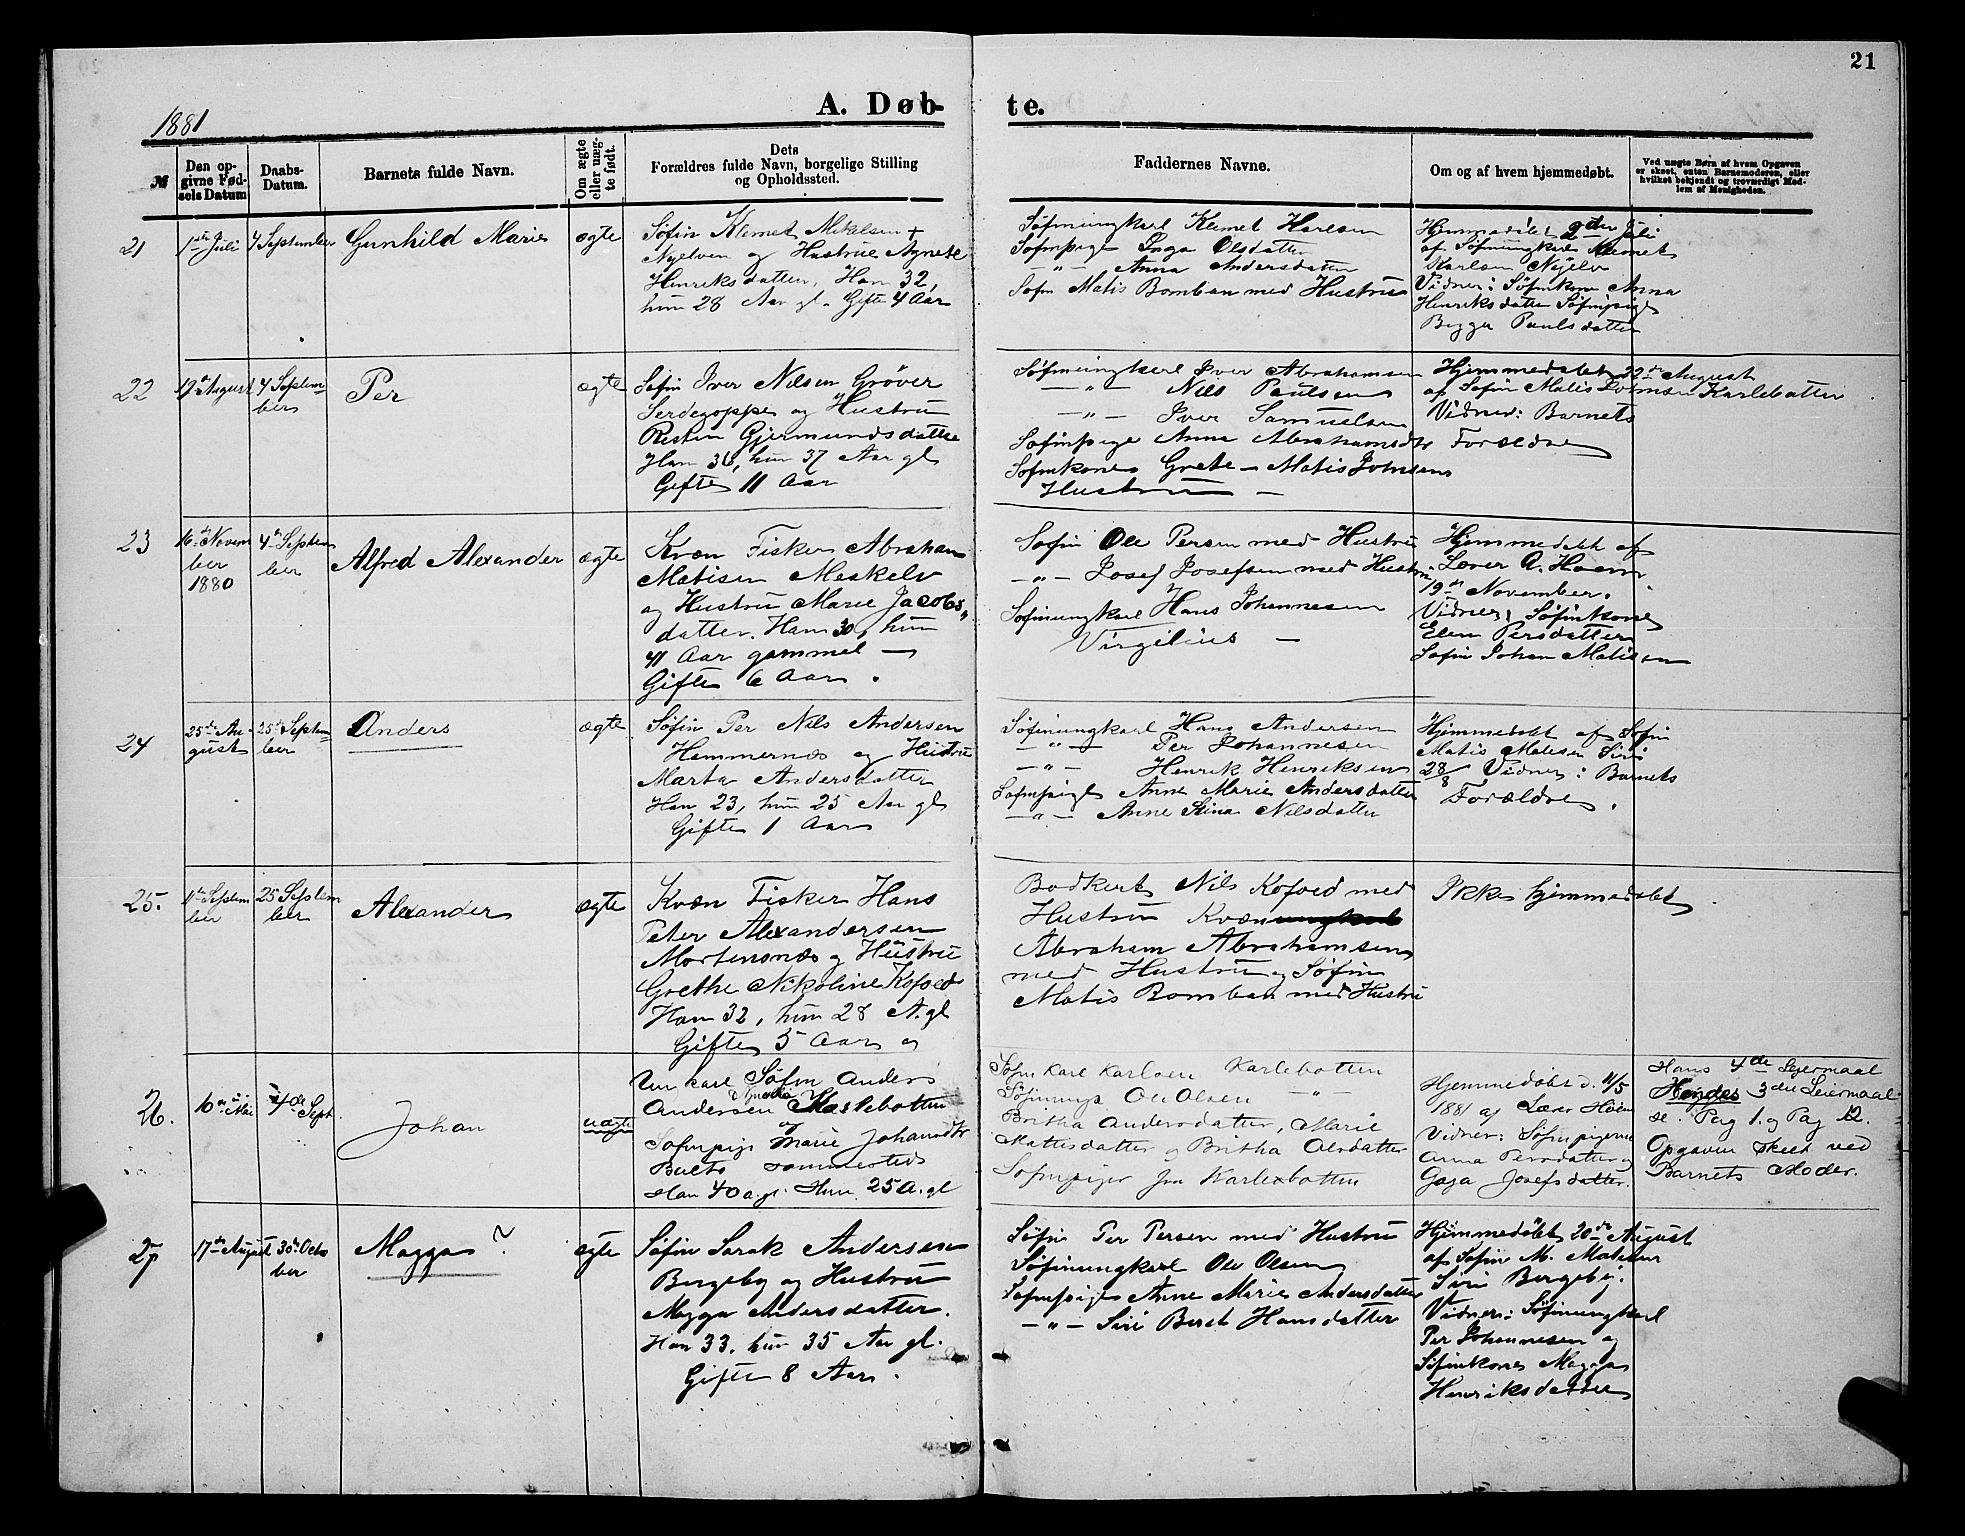 21
1881
A. Døb-
te.
№
Den op-
givne Fød-
sels Datum
Daabs-
Datum.
Barnets fulde Navn.
Om ægte
eller uæg-
te født.
Dets
Forældres fulde Navn, borgelige Stilling
og Opholdssted.
Faddernes Navne.
Om og af hvem hjemmedøbt.
Ved uægte Børn af hvem Opgaven
er skeet, enten Barnemoderen, eller
hvilket bekjendt og troværdigt Med-
lem af Menigheden.
21
1ste Juli
4 September
Gunhild Marie
ægte
Søfin Klemet Mikkelsen
Nyelven og Hustrue Agnete
Henriksdatter, Han 32,
hun 28 Aar gl. Gifte 4 Aar
Søfinungkarl Klemet Karlsen
Søfinpige Inga Olsdatter
—"— Anna Andersdatter
Søfin Matis Bomban med Hustru
Hjemmedøbt 2den Juli
af Søfinungkarl Klemet
Karlsen Nyelv
Vidner: Søfinkone Anna
Henriksdatter Søfinpige
Begga Paulsdatter
22
19de August
4 Septem-
ber
Per
ægte
Søfin Iver Nilsen Grøver
Serdegoppe og Hustru
Risten Gjermundsdatter
Han 36, hun 37 Aar gl
Gifte 11 Aar
Søfinungkarl Iver Abrahamsen
—"— Nils Paulsen
—"— Iver Samuelsen
Søfinpige Anna Abrahamsdtr
Søfinkone Grete — Matis Johnsens
Hustru —
Hjemmedøbt 22de August
af Søfin Matis Johnsen Karlebotten
Vidner: Barnets
Forældre
23
16de Novem
ber
1880
4de Septem
ber
Alfred Alexander
ægte
Kvæn Fisker Abraham
Matisen Meskelv
og Hustru Marie Jacobs„
datter. Han 30, hun
41 Aar gammel —
Gifte 6 Aar.
Søfin Ole Persen med Hustru
—"— Josef Josefsen med Hustru
Søfinungkarl Hans Johannesen
Virgilius —
Hjemmedøbt af
Lærer A. Hoem
19de November.
Vidner: Søfinkone
Elen Persdatter
Søfin Johan Matisen
24
25de Au-
gust
25de Septem-
ber
Anders
ægte
Søfin Per Nils Andersen
Hammernæs og Hustru
Marta Andersdatter
Han 23, hun 25 Aar gl
Gifte 1 Aar
Søfinungkarl Hans Andersen
—"— Per Johannesen
—"— Henrik Henriksen
Søfinpige Anne Marie Andersdatter
—"— Anne Stina Nilsdatter
Hjemmedøbt af Søfin
Matis Matisen Siri
28/8 Vidner: Barnets
Forældre.
25.
11te Septem
ber
25 Septem
ber
Alexander
ægte
Kvæn Fisker Hans
Peter Alexandersen
Mortensnæs og Hustru
Grethe Nikoline Kofoed
Han 32, hun 28 A. gl
Gifte 5 Aar
Bødkert Nils Kofoed med
Hustru Kvæn
Abraham Abrahamsen
med Hustru og Søfin
Matis Bomban med Hustru
Ikke hjemmedøbt
26.
10de Mai
4de Sept.
Johan
uægte
Unkarl Søfin Anders
Andersen
Søfinpige Marie Johansdtr
Sommersted
Han 40 a. gl. Hun 25 A. gl
Søfin Karl Karlsen Karlebotten
Søfinungk Ole Olsen —"—
Britha Andersdatter, Marie
Mattisdatter og Britha Olsdatter
Søfinpiger fra Karlebotten
Hjemmedøbt d. 11/5
1881 af Lærer Hoem
Vidner: Søfinpigerne
Anna Persdatter og
Gaga Josefsdatter.
Hans 4de Leiermaal
Hendes 3die Leiermaal
se. Pag 1. og Pag 12.
Opgaven skeet ved
Barnets Moder.
27
17de August
30de Octo
ber
Magga ?
ægte
Søfin Sarak Andersen
Bergeby og Hustru
Magga Andersdatter.
Han 33. hun 35 Aar gl.
Gifte 8 Aar.
Søfin Per Persen med Hustru
Søfinungkarl Ole Olsen
Søfinpige Anne Marie Andersdatter
—"— Siri Beret Hansdatter
Hjemmedøbt 20de August
af Søfin M. Matisen
Siri Bergeby.
Vidner: Søfinungkarl
Per Johannesen og
Søfinkone Magga
Henriksdatter